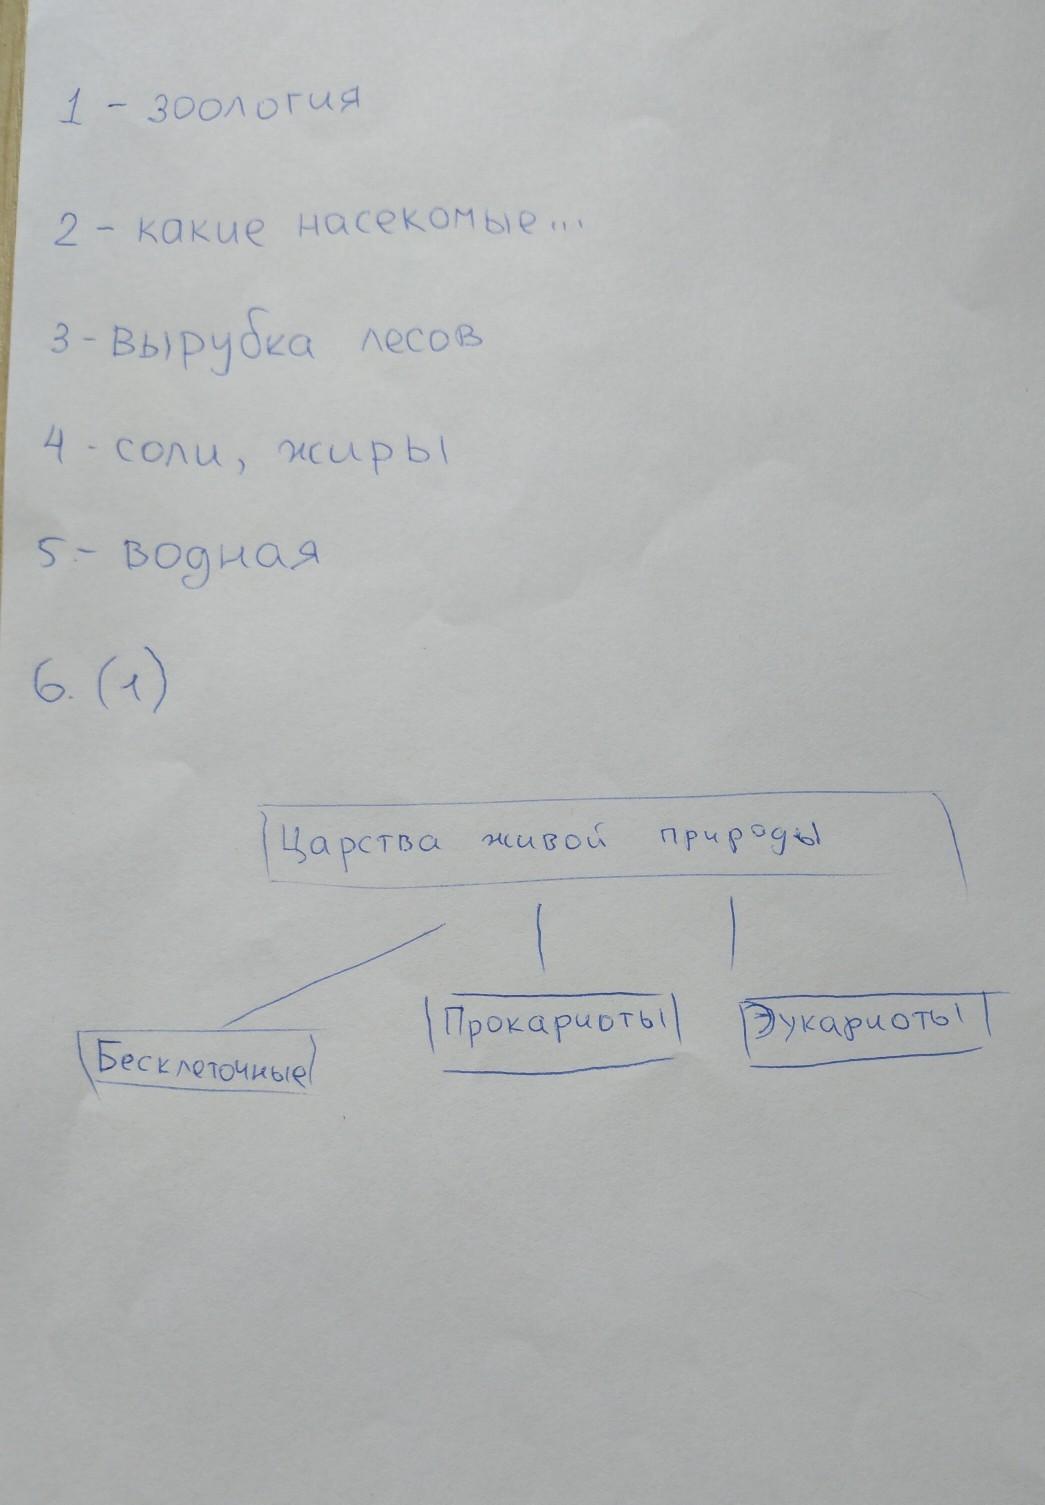 1 - зоология
2 - какие насекомые...
3 - вырубка лесов
4 - соли, жиры
5 - водная
6. (1)
Царства живой природы
Бесклеточные
Прокариоты
Эукариоты